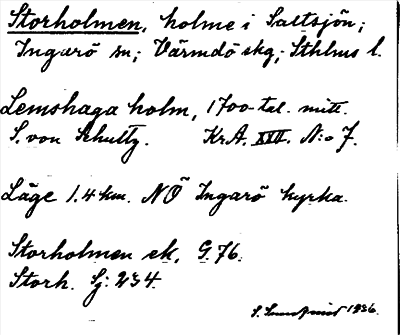 Storholmen, holme i Saltsjön;
Ingarö sn; Värmdö skg; Sthlms l.
Lemshaga holm, 1700-tal. mitt.
S. von Schultz. Kr.A. XXII. N:o 7.
Läge 1.4 km. NÖ Ingarö kyrka.
Storholmen ek. G. 76.
Storh. Sj: 234.
1936.